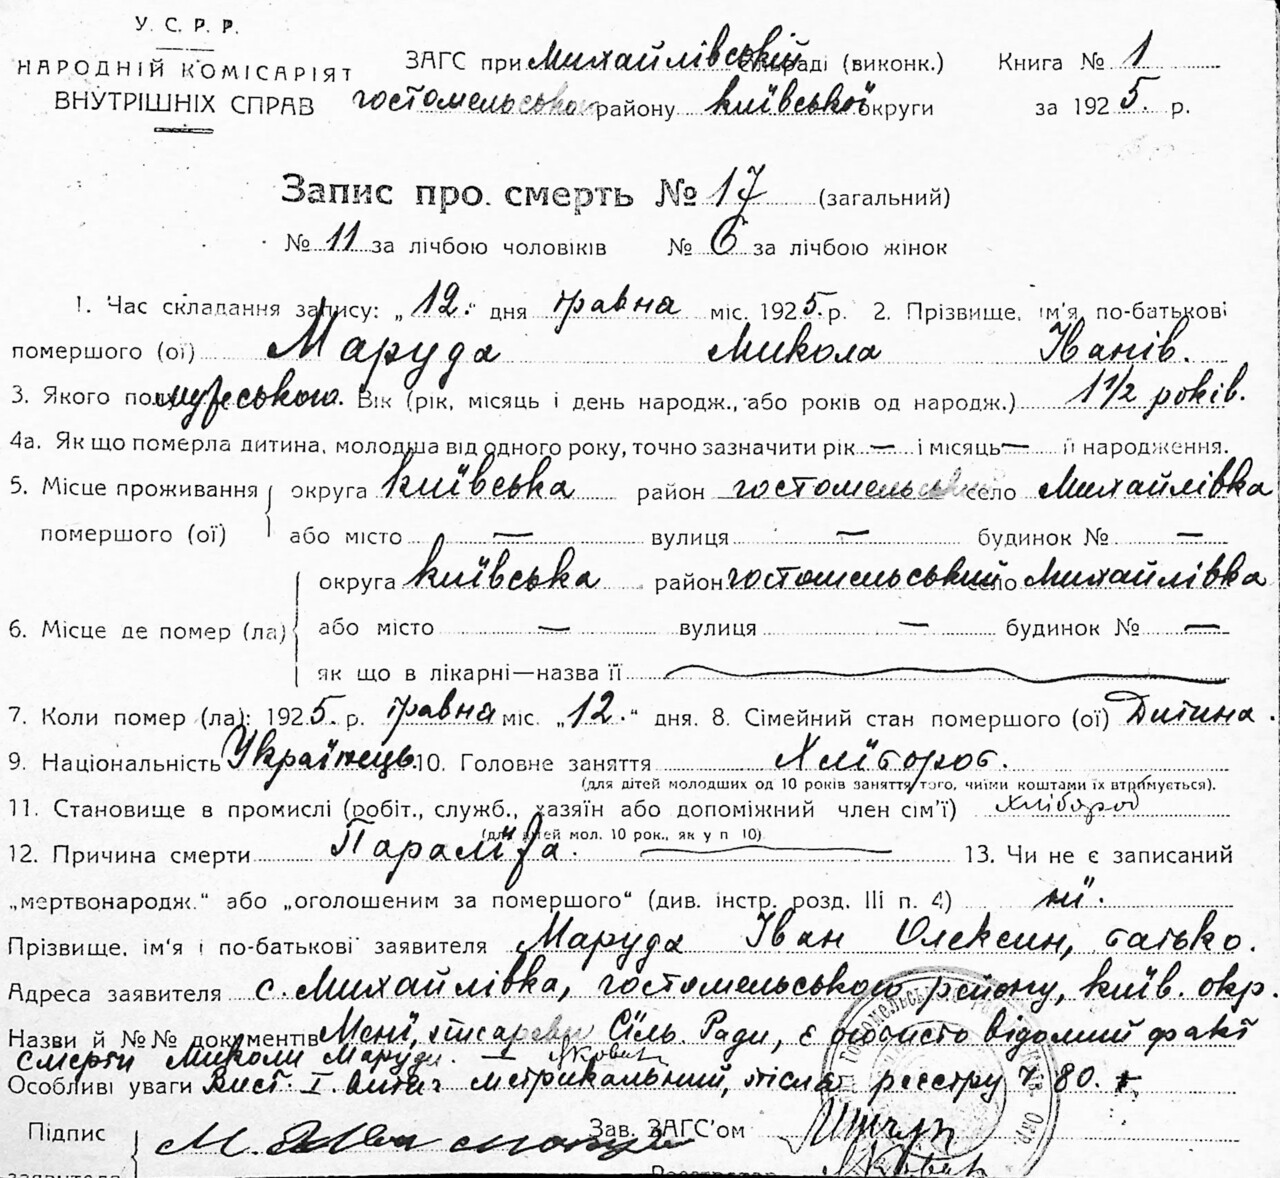 У. С. Р. Р.
НАРОДНІЙ КОМІСАРІЯТ
ВНУТРІШНІХ СПРАВ
ЗАГС при Михайлівській сільраді (виконк.) Книга № 1
гостомельського району київської округи за 1925. р.
Запис про смерть № 17 (загальний)
№ 11 за лічбою чоловіків № 6 за лічбою жінок
1. Час складання запису: „12." дня травня міс. 1925. р. 2. Прізвище, ім'я, по-батькові
помершого (ої) Маруда Микола Іванів.
3. Якого полу мужеського. Вік (рік, місяць і день народж., або років од народж.) 1 1/2 років.
4а. Як що померла дитина, молодша від одного року, точно зазначити рік — і місяць — її народження.
5. Місце проживання помершого (ої) округа київська район гостомельський село Михайлівка
або місто — вулиця — будинок № —
6. Місце де помер (ла) округа київська район гостомельський село Михайлівка
або місто — вулиця — будинок № —
як що в лікарні—назва її
7. Коли помер (ла): 1925. р. травня міс. „12." дня. 8. Сімейний стан помершого (ої) Дитина.
9. Національність Українець. 10. Головне заняття Хлібороб.
(для дітей молодших од 10 років заняття того, чиїми коштами їх втримується).
11. Становище в промислі (робіт., служб., хазяїн або допоміжний член сім'ї) хлібороб
(для дітей мол. 10 рок., як у п 10)
12. Причина смерти Параліжа. 13. Чи не є записаний
„мертвонародж." або „оголошеним за помершого" (див. інстр. розд. III п. 4) ні.
Прізвище, ім'я і по-батькові заявителя Маруда Іван Олексин, батько.
Адреса заявителя с. Михайлівка, гостомельського району, київ. окр.
Назви й №№ документів Мені, писареви Сіль. Ради, є особисто відомий факт
смерти Миколи Маруди.
Особливі уваги Вист. I. витяг метрикальний, після реєстру ч 80.
Підпис Зав. ЗАГС'ом
заявителя Реєстратор